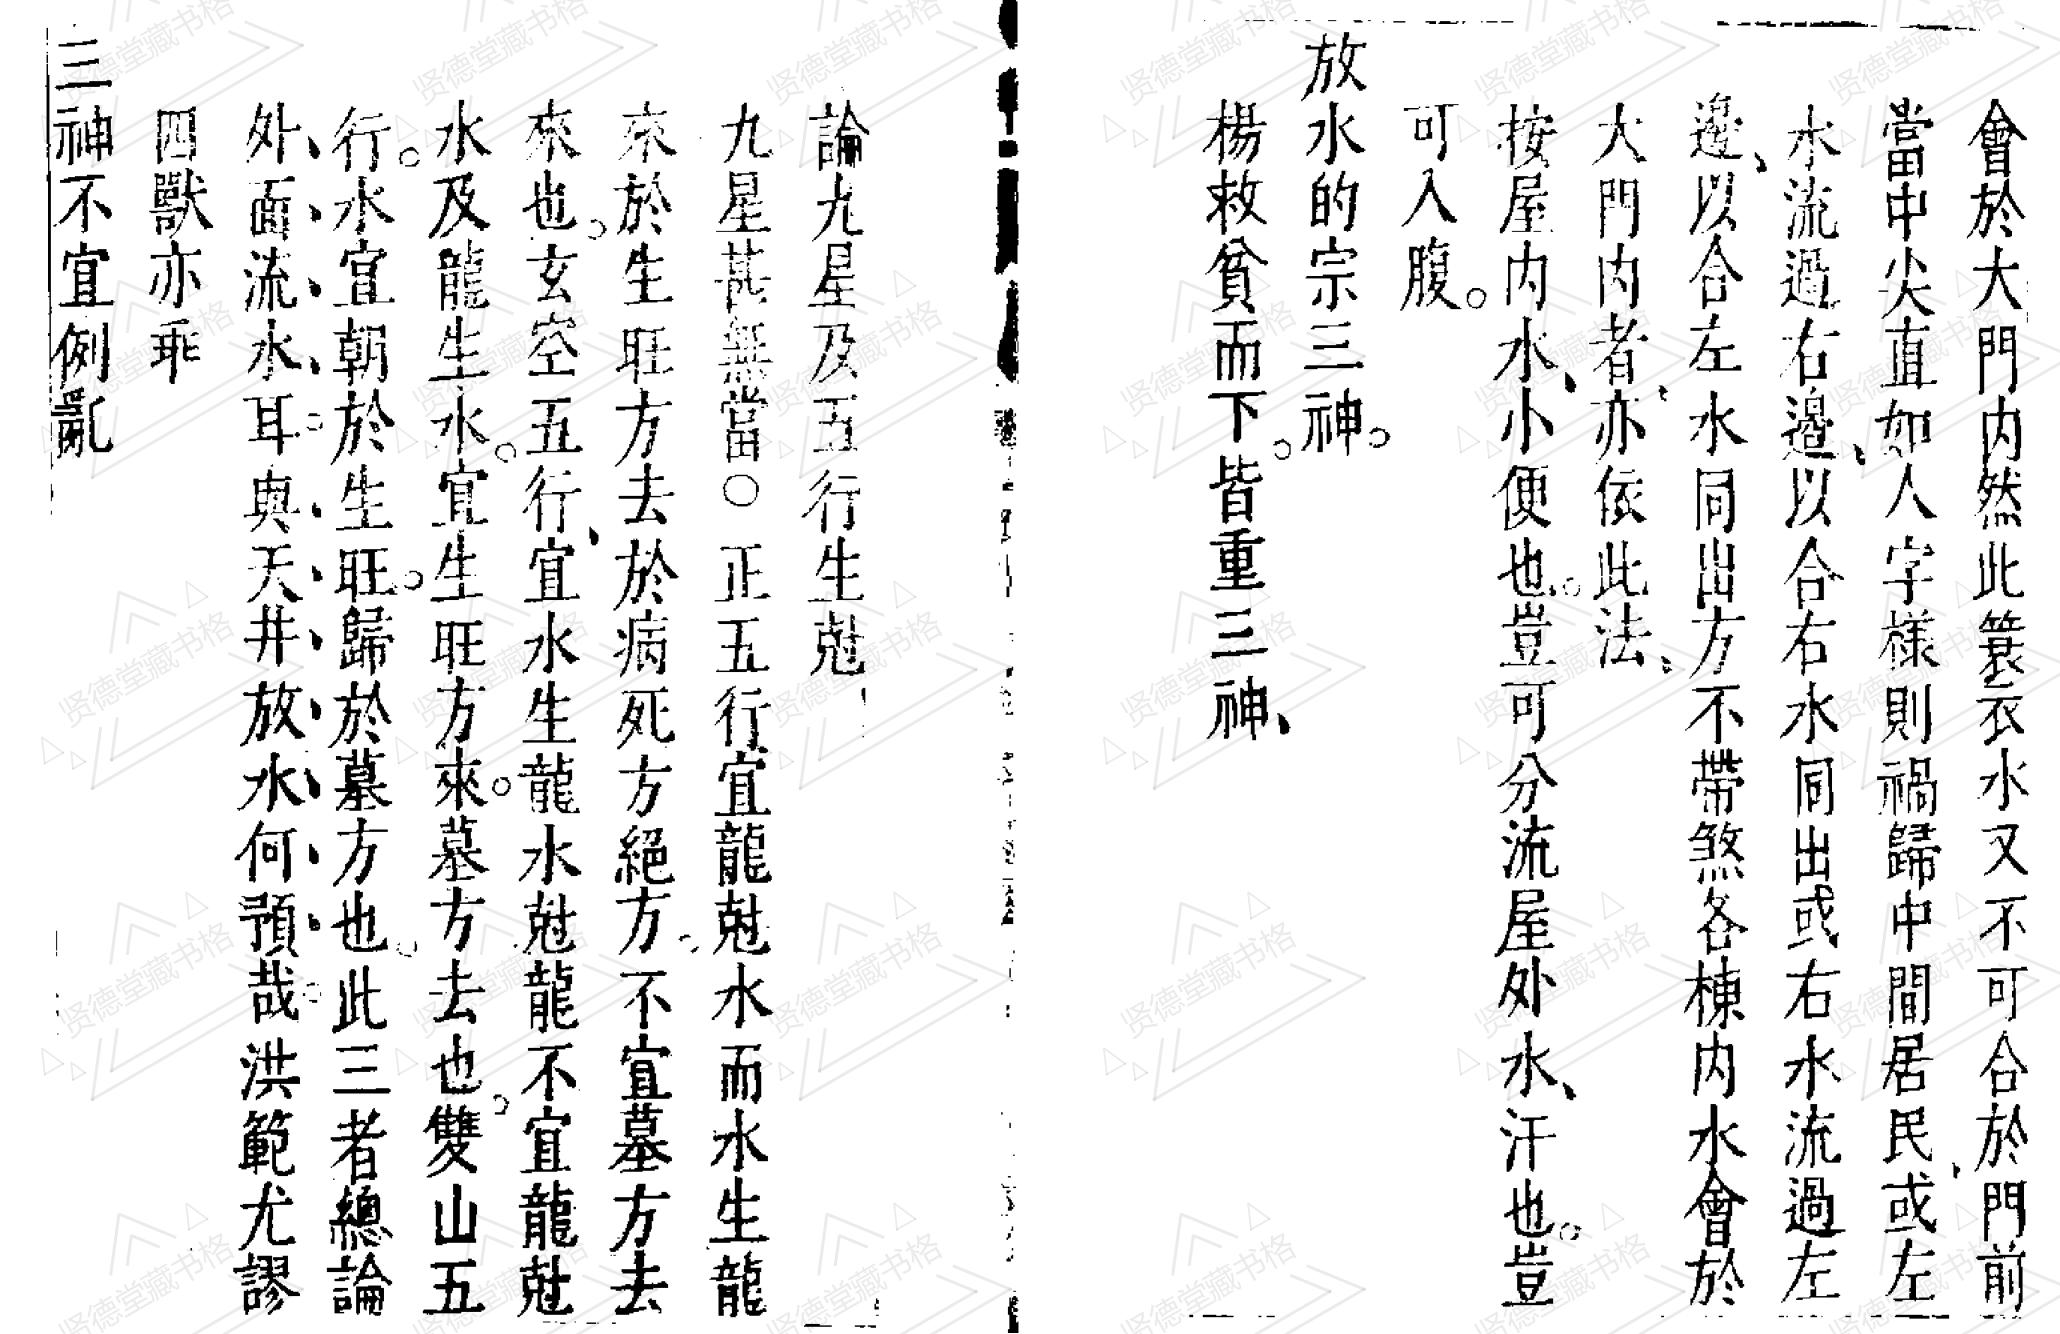 會於大門内然此簑衣水又不可合於門前
當中尖直如人字樣則禍歸中間居民、或左
水流過右邉、以合右水同出或右水流過左
邉、以合左水同出方不帶煞各棟内水會於
大門内者、亦依此法、
按屋内水、小便也。豈可分流屋外水、汗也。豈
可入腹。
放水的宗三神。
楊救貧而下。皆重三神、
論九星及五行生尅
九星甚無當○正五行宜龍尅水而水生龍
來於生旺方去於病死方絕方。不宜墓方去
來也。玄空五行、宜水生龍水尅龍不宜龍尅
水及龍生水。宜生旺方來。墓方去也。雙山五
行。水宜朝於生旺。歸於墓方也。此三者總論
外面流水耳。與天井放水何預哉。洪範尤謬
四獸亦乖
三神不宜例亂